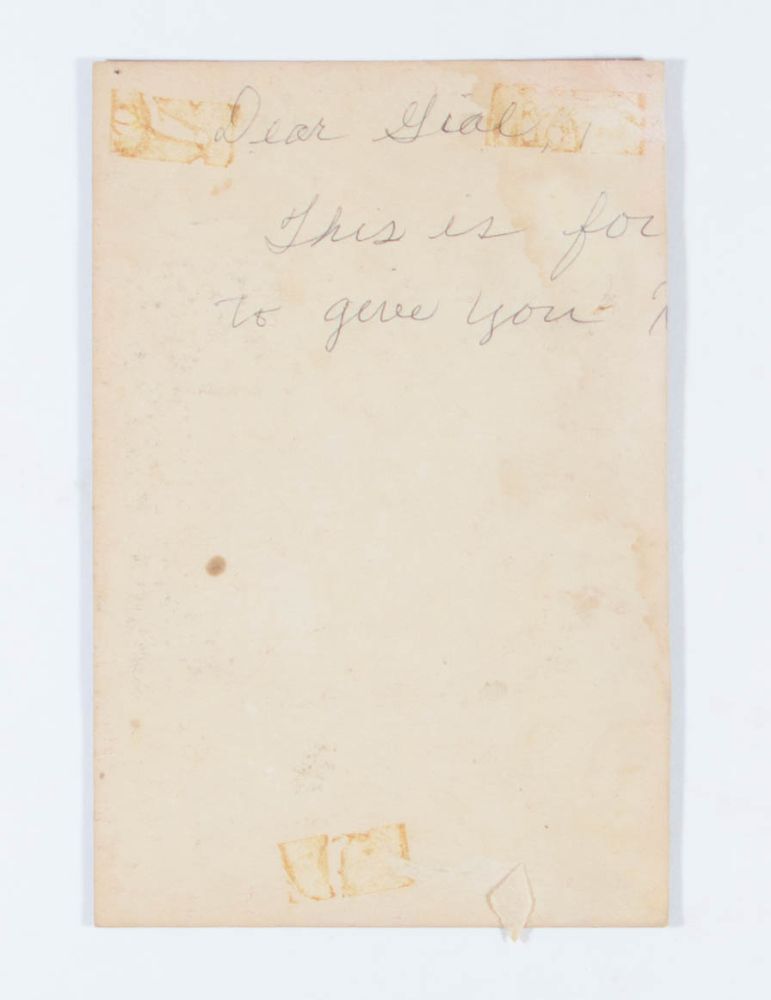 Dear Gial,
This is for
to geve you